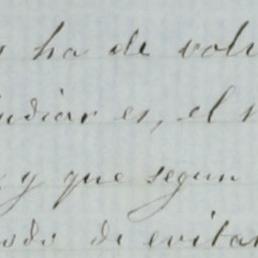 ha de volv
es, el
y que segun
de evitar